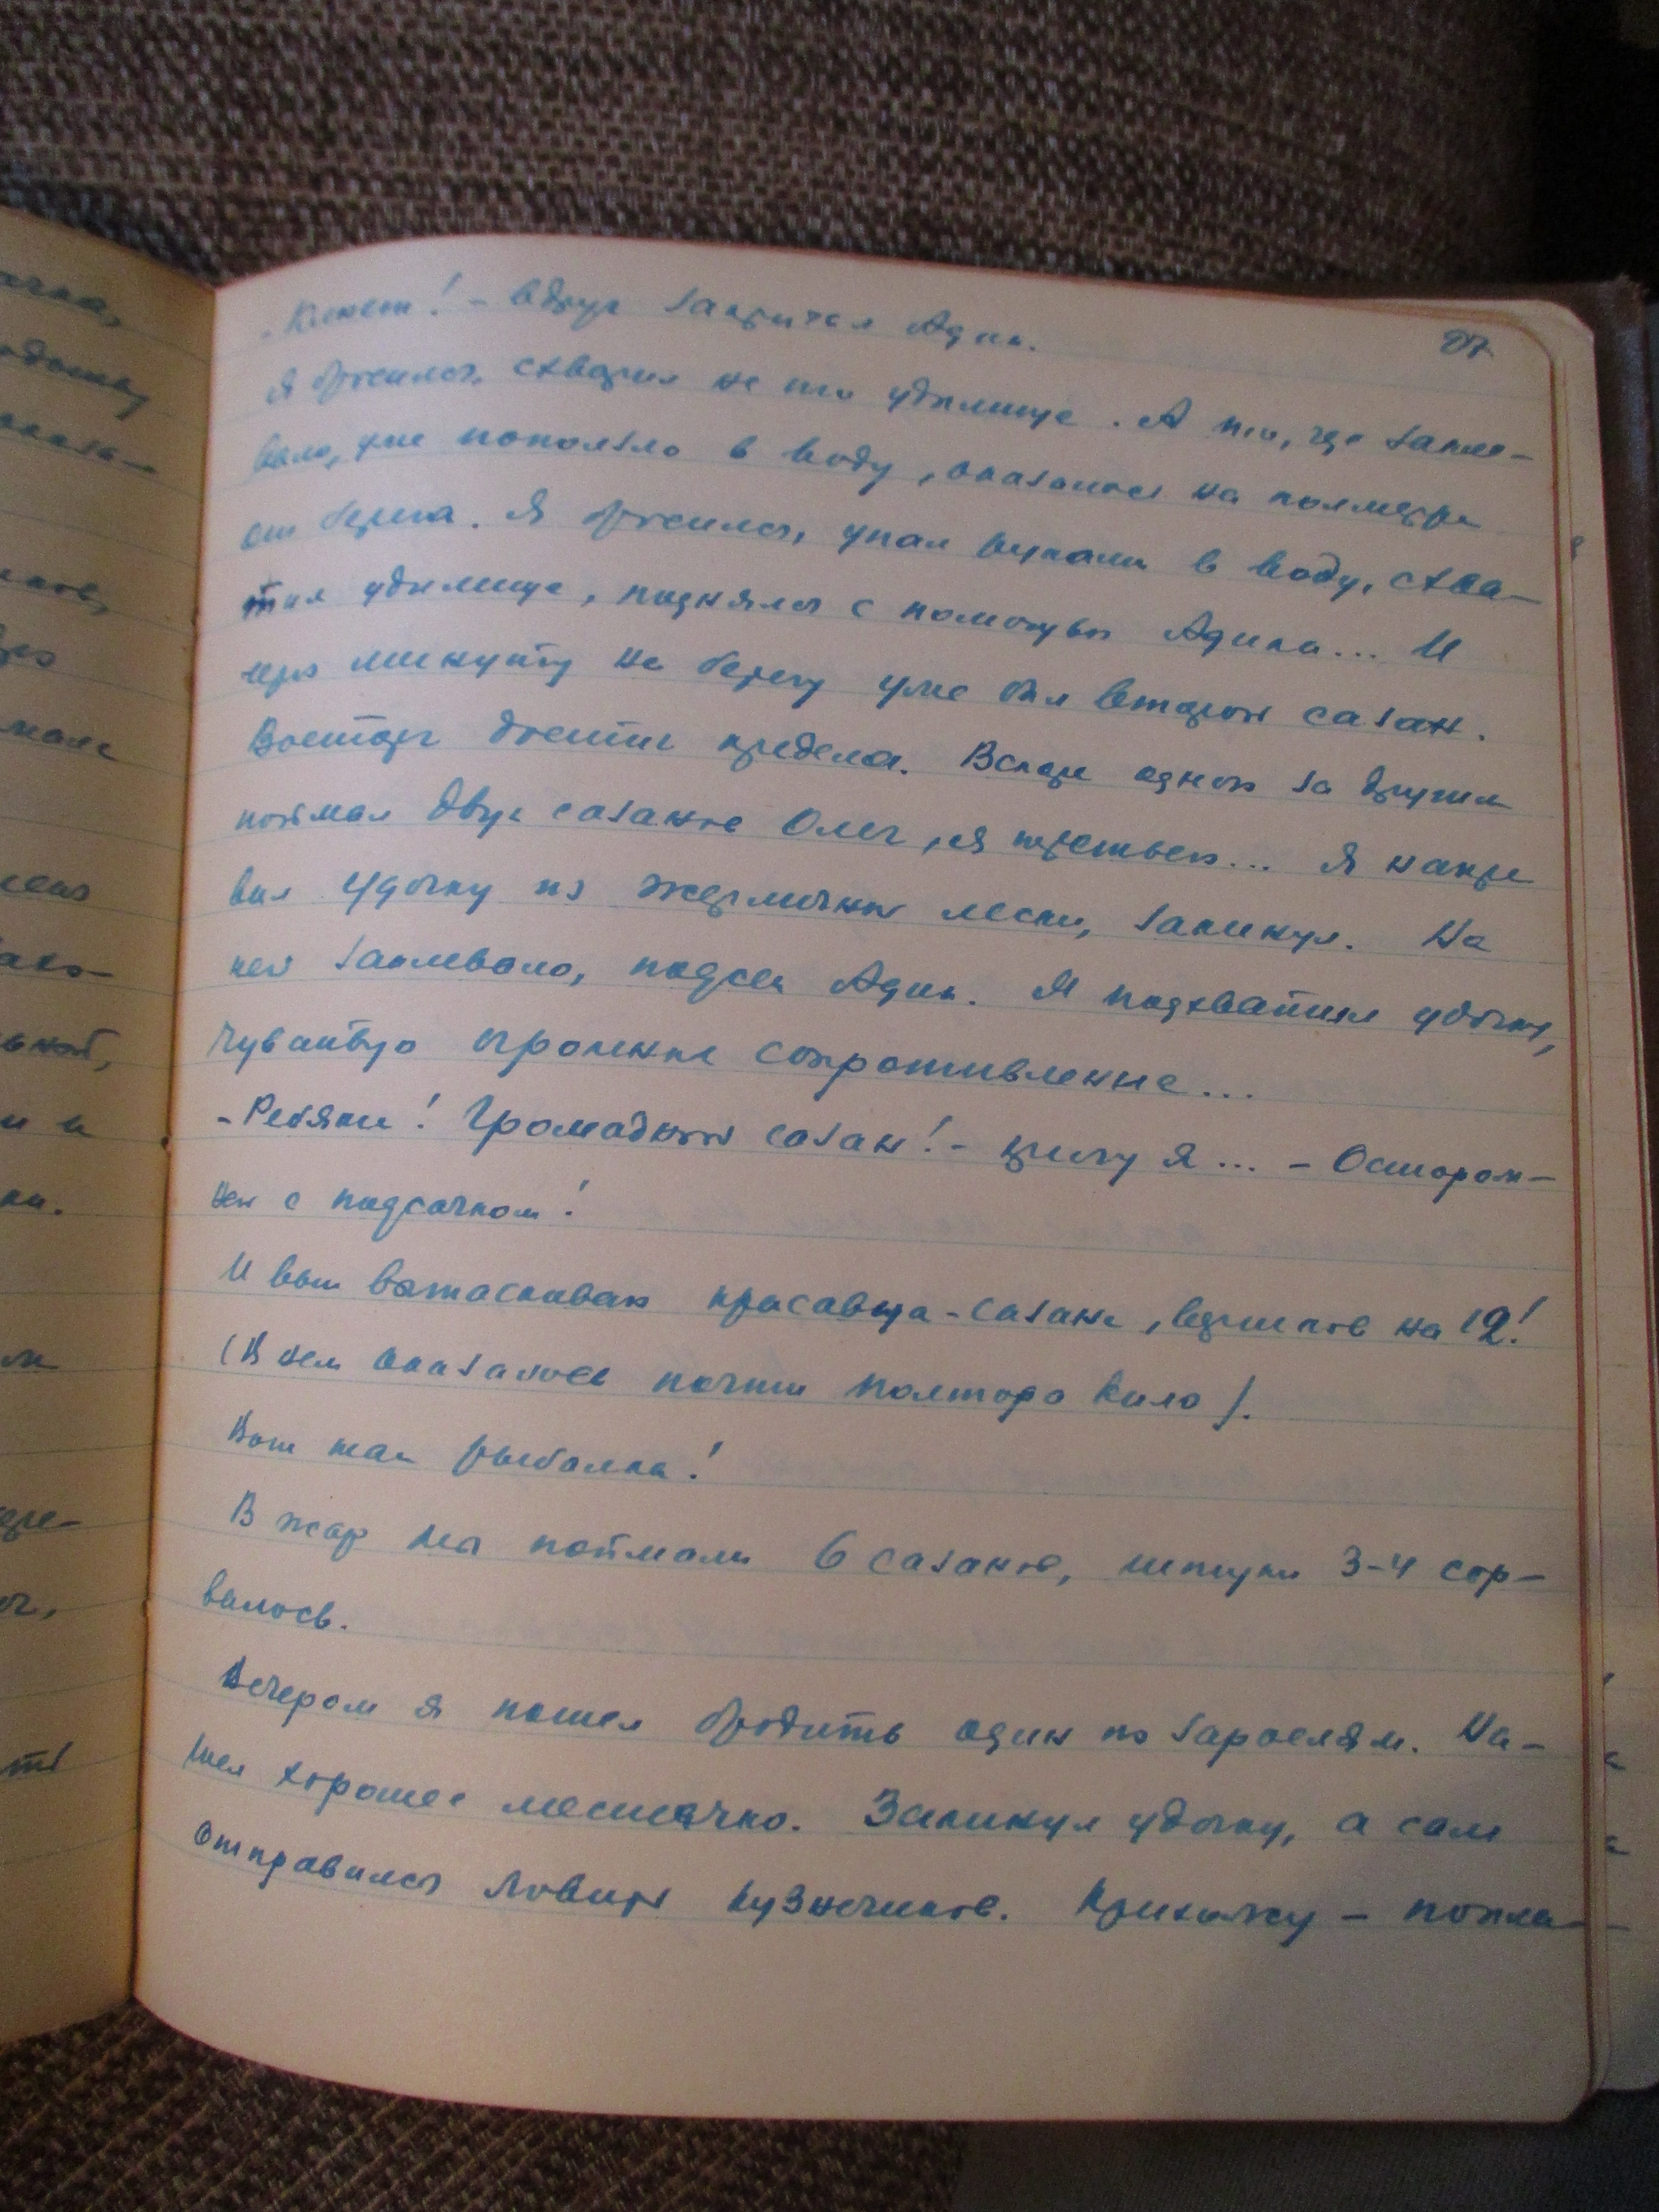 87
- Клюет! - вдруг закричал Адик.
Я бросился, схватил не то удилище. А то, где запле-
вало, уже поползло в воду, оказалось на полметра
от берега. Я бросился, упал руками в воду, схва-
тил удилище, поднялся с помощью Адика... И
через минуту на берегу уже был второй сазан.
Восторг достиг предела. Вскоре одного за другим
поймал двух сазанов Олег, я третьего... Я напра
вил удочку из жерличной лески, закинул. На
ней заклевало, подсек Адик. Я подхватил удочку,
чувствую огромное сопротивление...
- Ребята! Громадный сазан! - кричу я... - Осторож-
ней с подсачком!
И вот вытаскиваю красавца-сазана, вершков на 12!
(В нем оказалось почти полтора кило).
Вот так рыбалка!
В жар мы поймали 6 сазанов, штуки 3-4 сор-
валось.
Вечером я пошел бродить один по зарослям. На-
шел хорошее местечко. Закинул удочку, а сам
отправился ловить кузнечиков. Прихожу - попла-
мале
ьной,
и и
ки.